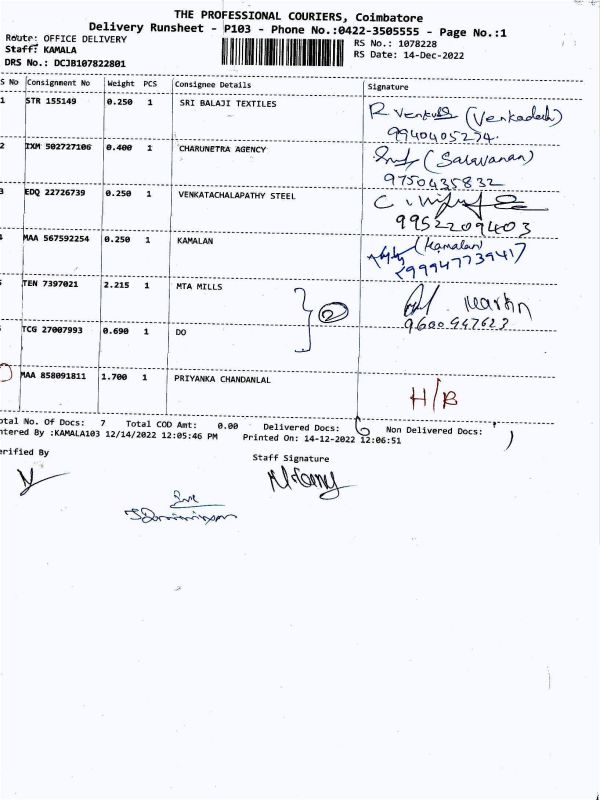 THE PROFESSIONAL COURIERS, Coimbatore
Delivery Runsheet - P103 - Phone No.:0422-3505555 - Page No.:1
Route: OFFICE DELIVERY
RS No.: 1078228
Staff: KAMALA
RS Date: 14-Dec-2022
DRS No.: DCJB107822801
S No Consignment No Weight PCS Consignee Details Signature
1 STR 155149 0.250 1 SRI BALAJI TEXTILES (Venkadesh)
9940405274.
2 IXM 502727106 0.400 1 CHARUNETRA AGENCY (Saravanan)
9750435832
3 EDQ 22726739 0.250 1 VENKATACHALAPATHY STEEL
9952209403
MAA 567592254 0.250 1 KAMALAN (Kamalan)
9994773941
TEN 7397021 2.215 1 MTA MILLS 2 Martin
9600947623
TCG 27007993 0.690 1 DO
MAA 858091811 1.700 1 PRIYANKA CHANDANLAL H/B
otal No. Of Docs: 7 Total COD Amt: 0.00 Delivered Docs: 6 Non Delivered Docs: 1
ntered By :KAMALA103 12/14/2022 12:05:46 PM Printed On: 14-12-2022 12:06:51
erified By Staff Signature